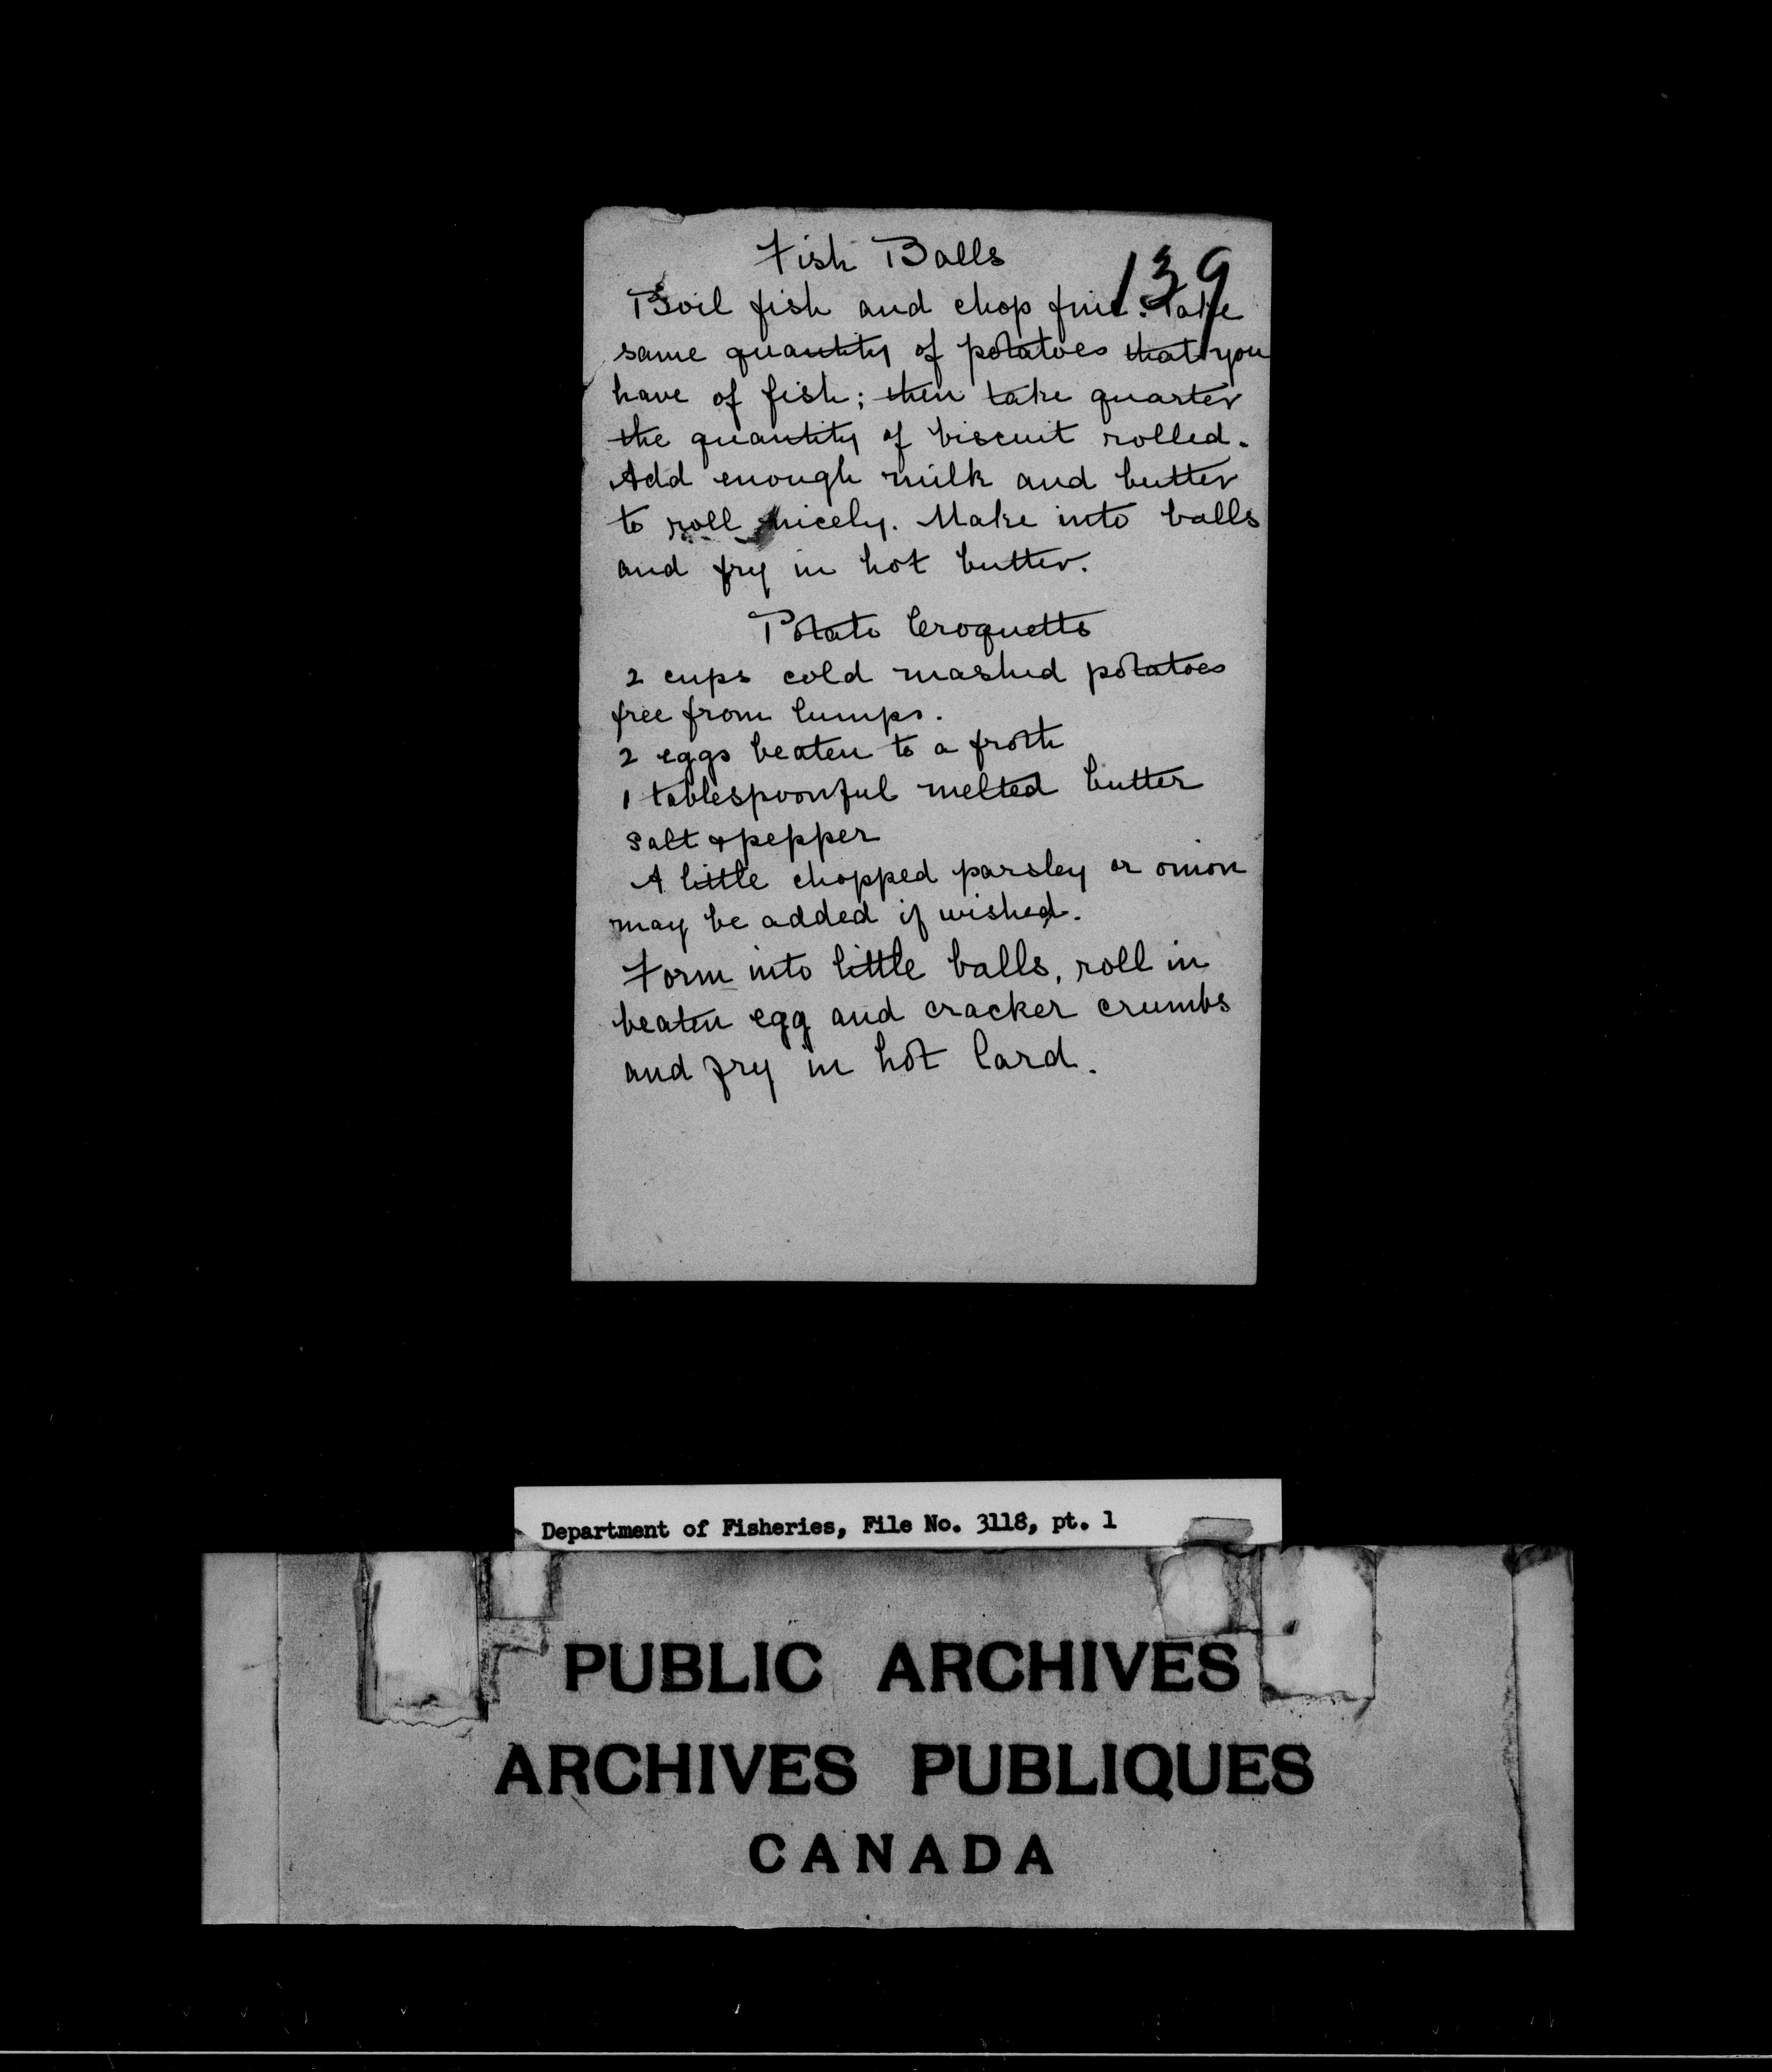 Fish Balls
139
Boil fish and chop fine. Take
same quantity of potatoes that you
have of fish; then take quarter
the quantity of biscuit rolled.
Add enough milk and butter
to roll nicely. Make into balls
and fry in hot butter.
Potato Croquetts
2 cups cold mashed potatoes
free from lumps.
2 eggs beaten to a froth
1 tablespoonful melted butter
Salt & pepper
A little chopped parsley or onion
may be added if wished.
Form into little balls, roll in
beaten egg and cracker crumbs
and fry in hot lard.
Department of Fisheries, File No. 3118, pt. 1
PUBLIC ARCHIVES
ARCHIVES PUBLIQUES
CANADA